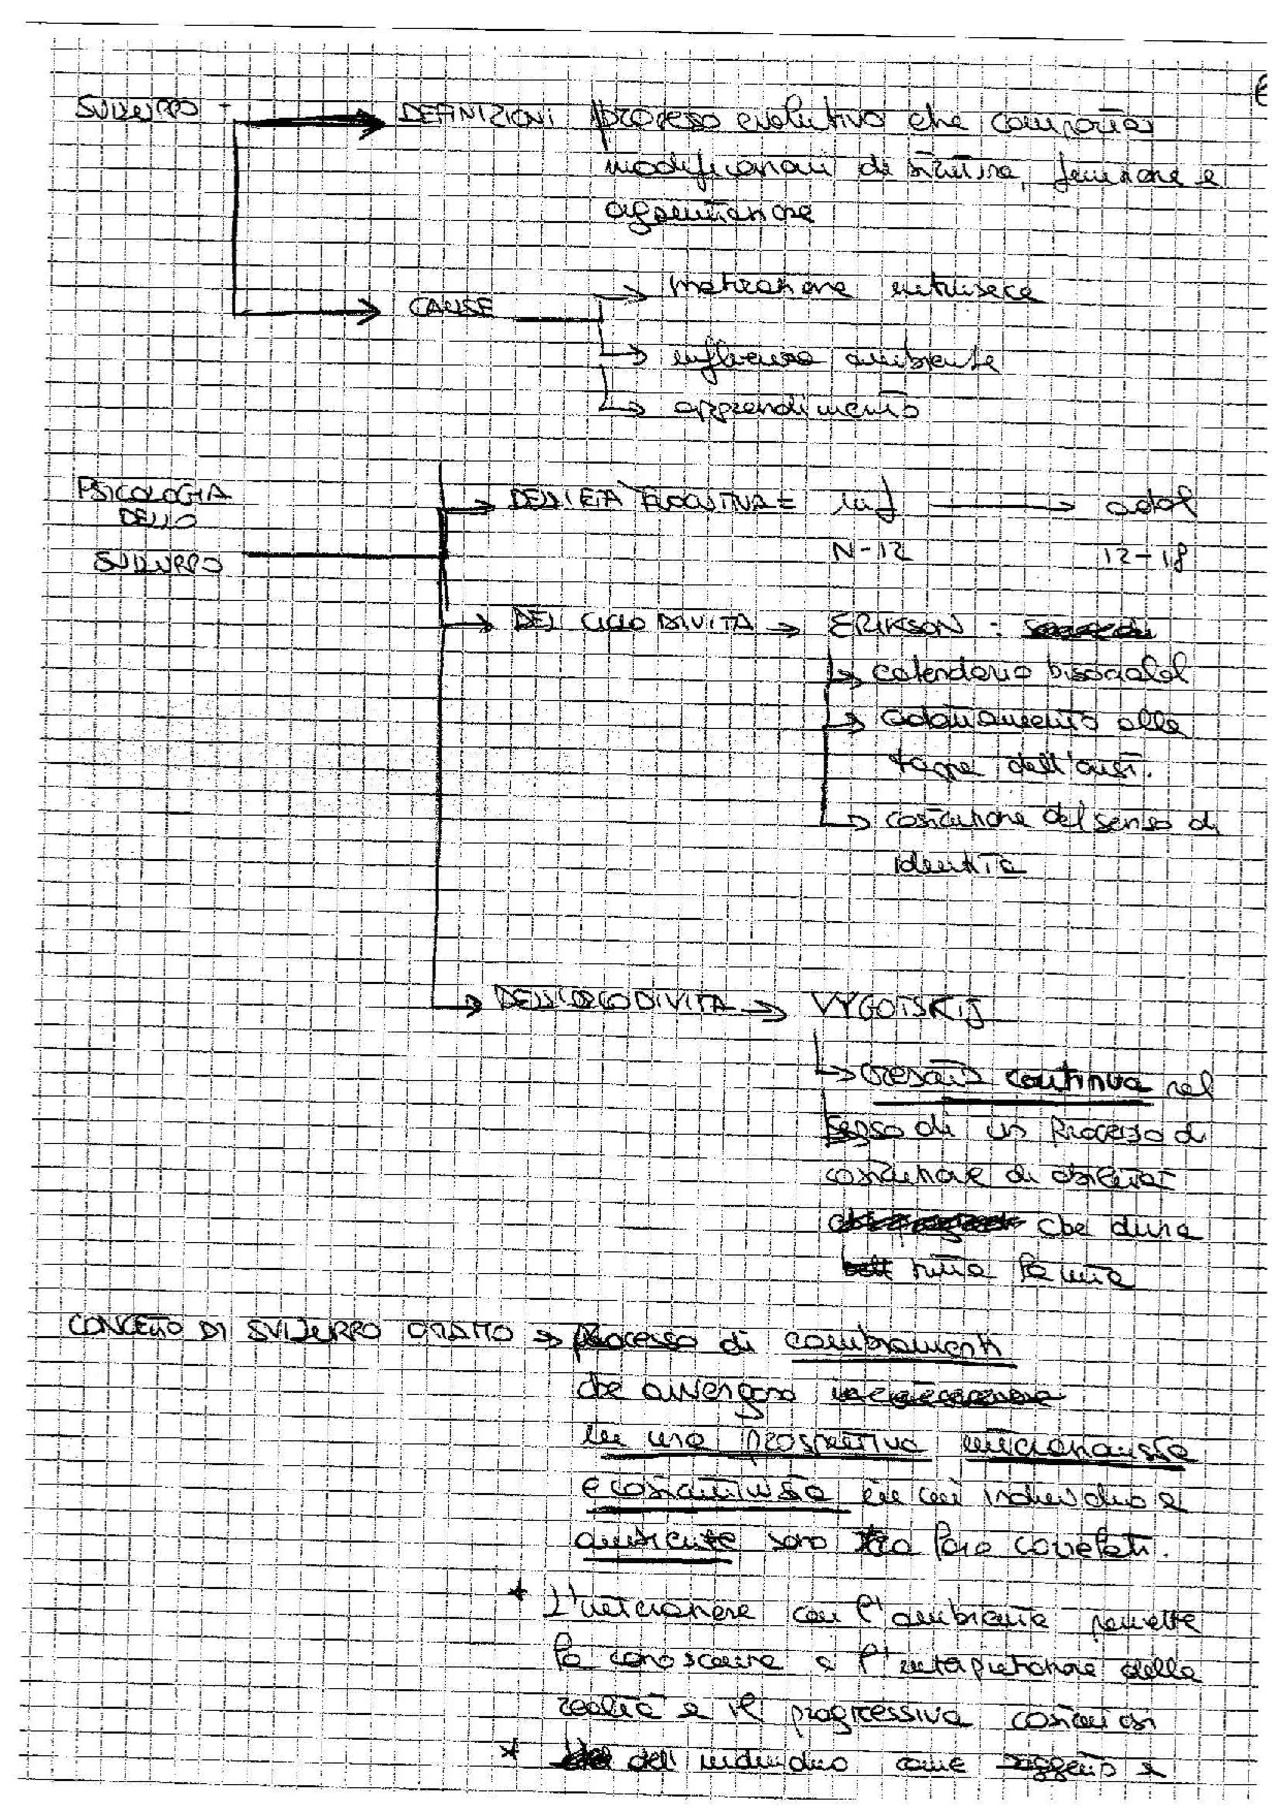 SVILUPPO → DEFINIZIONI processo evolutivo che comporta
modificazioni di struttura, funzione e
organizzazione
CAUSE → maturazione intrinseca
→ influenza ambiente
→ apprendimento
PSICOLOGIA
DELLO
SVILUPPO
→ DELL'ETÀ EVOLUTIVA = inf → adol
N-12 12-18
→ DEL CICLO DI VITA → ERIKSON :
→ calendario biosocial
→ adattamento alle
tappe dell'
→ costruzione del senso di
identità
→ DELL'ARCO DI VITA → VYGOTSKIJ
→ crescita continua nel
senso di un processo di
costruzione di obiettivi
che dura
tutta la vita
CONCETTO DI SVILUPPO → Processo di cambiamenti
che avvengono
in una prospettiva interazionista
e costruttivista in cui individuo e
ambiente sono tra loro correlati.
* L'interazione con l'ambiente permette
la conoscenza e l'interpretazione della
realtà e il progressivo
* dell'individuo come soggetto e